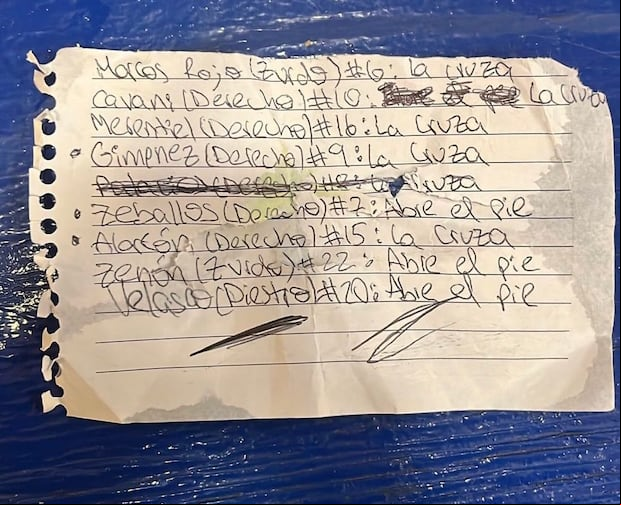 Marcos Rojo (Zurdo) #6: La Cruza
Cavani (Derecho) #10: La Cruza
Merentiel (Derecho) #16: La Cruza
Gimenez (Derecho) #9: La Cruza
(Derecho) #8: La Cruza
Zeballos (Derecho) #7: Abre el pie
Alarcón (Derecho) #15: La Cruza
Zenón (Zurdo) #22: Abre el pie
Velasco (Diestro) #20: Abre el pie